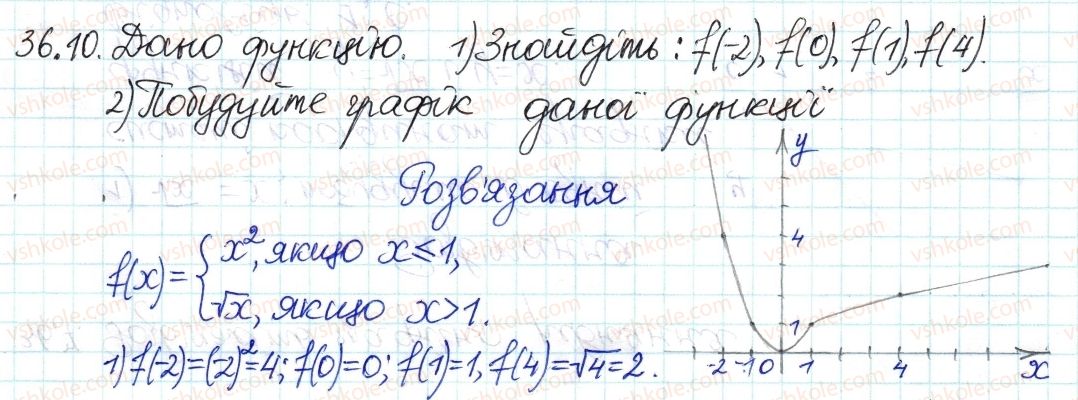 36.10. Дано функцію. 1) Знайдіть: f(-2), f(0), f(1), f(4).
2) Побудуйте графік даної функції
Розв'язання
f(x) = { x², якщо x ≤ 1,
√x, якщо x > 1.
1) f(-2) = (-2)² = 4; f(0) = 0; f(1) = 1, f(4) = √4 = 2.
y
4
1
-2 -1 0 1 4 x